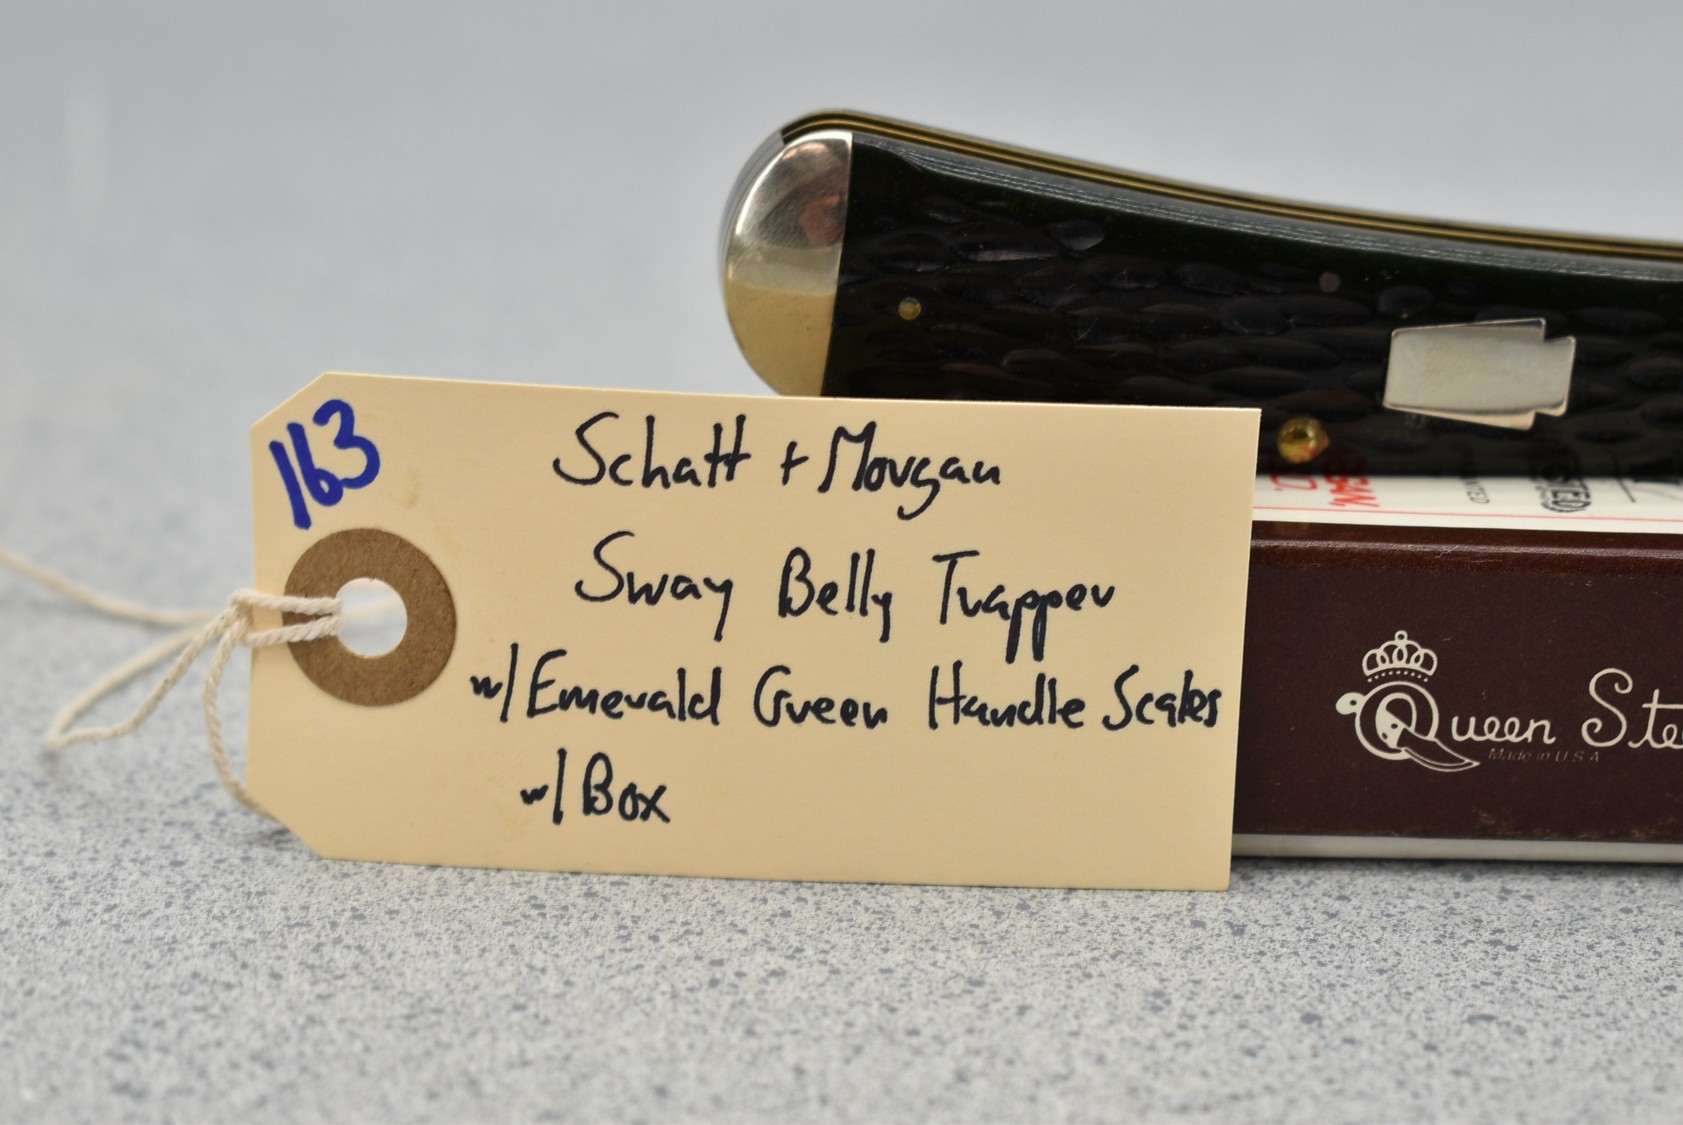 163
Schatt + Morgan
Sway Belly Trapper
w/ Emerald Green Handle Scales
w/ Box
Queen
Made in U.S.A